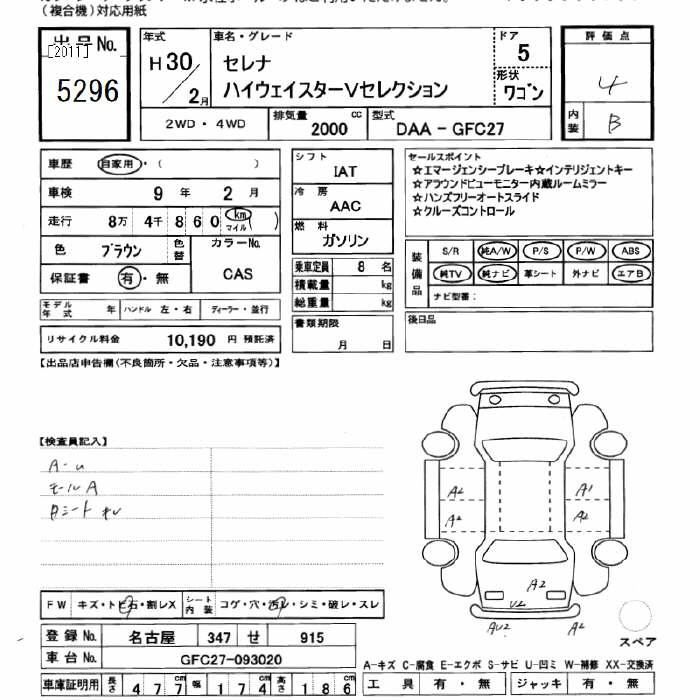 (複合機)対応用紙
出品No.
[2011]
5296
年式
H30/2月
車名・グレード
セレナ
ハイウェイスターVセレクション
ドア
5
形状
ワゴン
評価点
4
内装
B
2WD・4WD
排気量
2000
cc
型式
DAA-GFC27
車歴
自家用・( )
車検
9 年 2 月
走行
8万 4千 8 6 0 km マイル ( )
色
ブラウン
色替
カラーNo.
CAS
保証書
有・無
シフト
IAT
冷房
AAC
燃料
ガソリン
乗車定員 8 名
積載量 kg
総重量 kg
セールスポイント
☆エマージェンシーブレーキ☆インテリジェントキー
☆アラウンドビューモニター内蔵ルームミラー
☆ハンズフリーオートスライド
☆クルーズコントロール
装備品
S/R 純A/W P/S P/W ABS
純TV 純ナビ 革シート 外ナビ エアB
ナビ型番:
モデル年式 年 ハンドル 左・右 ディーラー・並行
リサイクル料金 10,190 円 預託済
書類期限
月 日
後日品
【出品店申告欄(不良箇所・欠品・注意事項等)】
【検査員記入】
A-u
モールA
A2
A1
A2
A2
A2
V2
AU2
A2
FW キズ・トビ石・割レX シート内装 コゲ・穴・汚レ・シミ・破レ・スレ
登録No. 名古屋 347 せ 915
車台No. GFC27-093020
スペア
A-キズ C-腐食 E-エクボ S-サビ U-凹ミ W-補修 XX-交換済
車庫証明用 長さ 4 7 7 幅 1 7 4 高さ 1 8 6
工具 有・無 ジャッキ 有・無